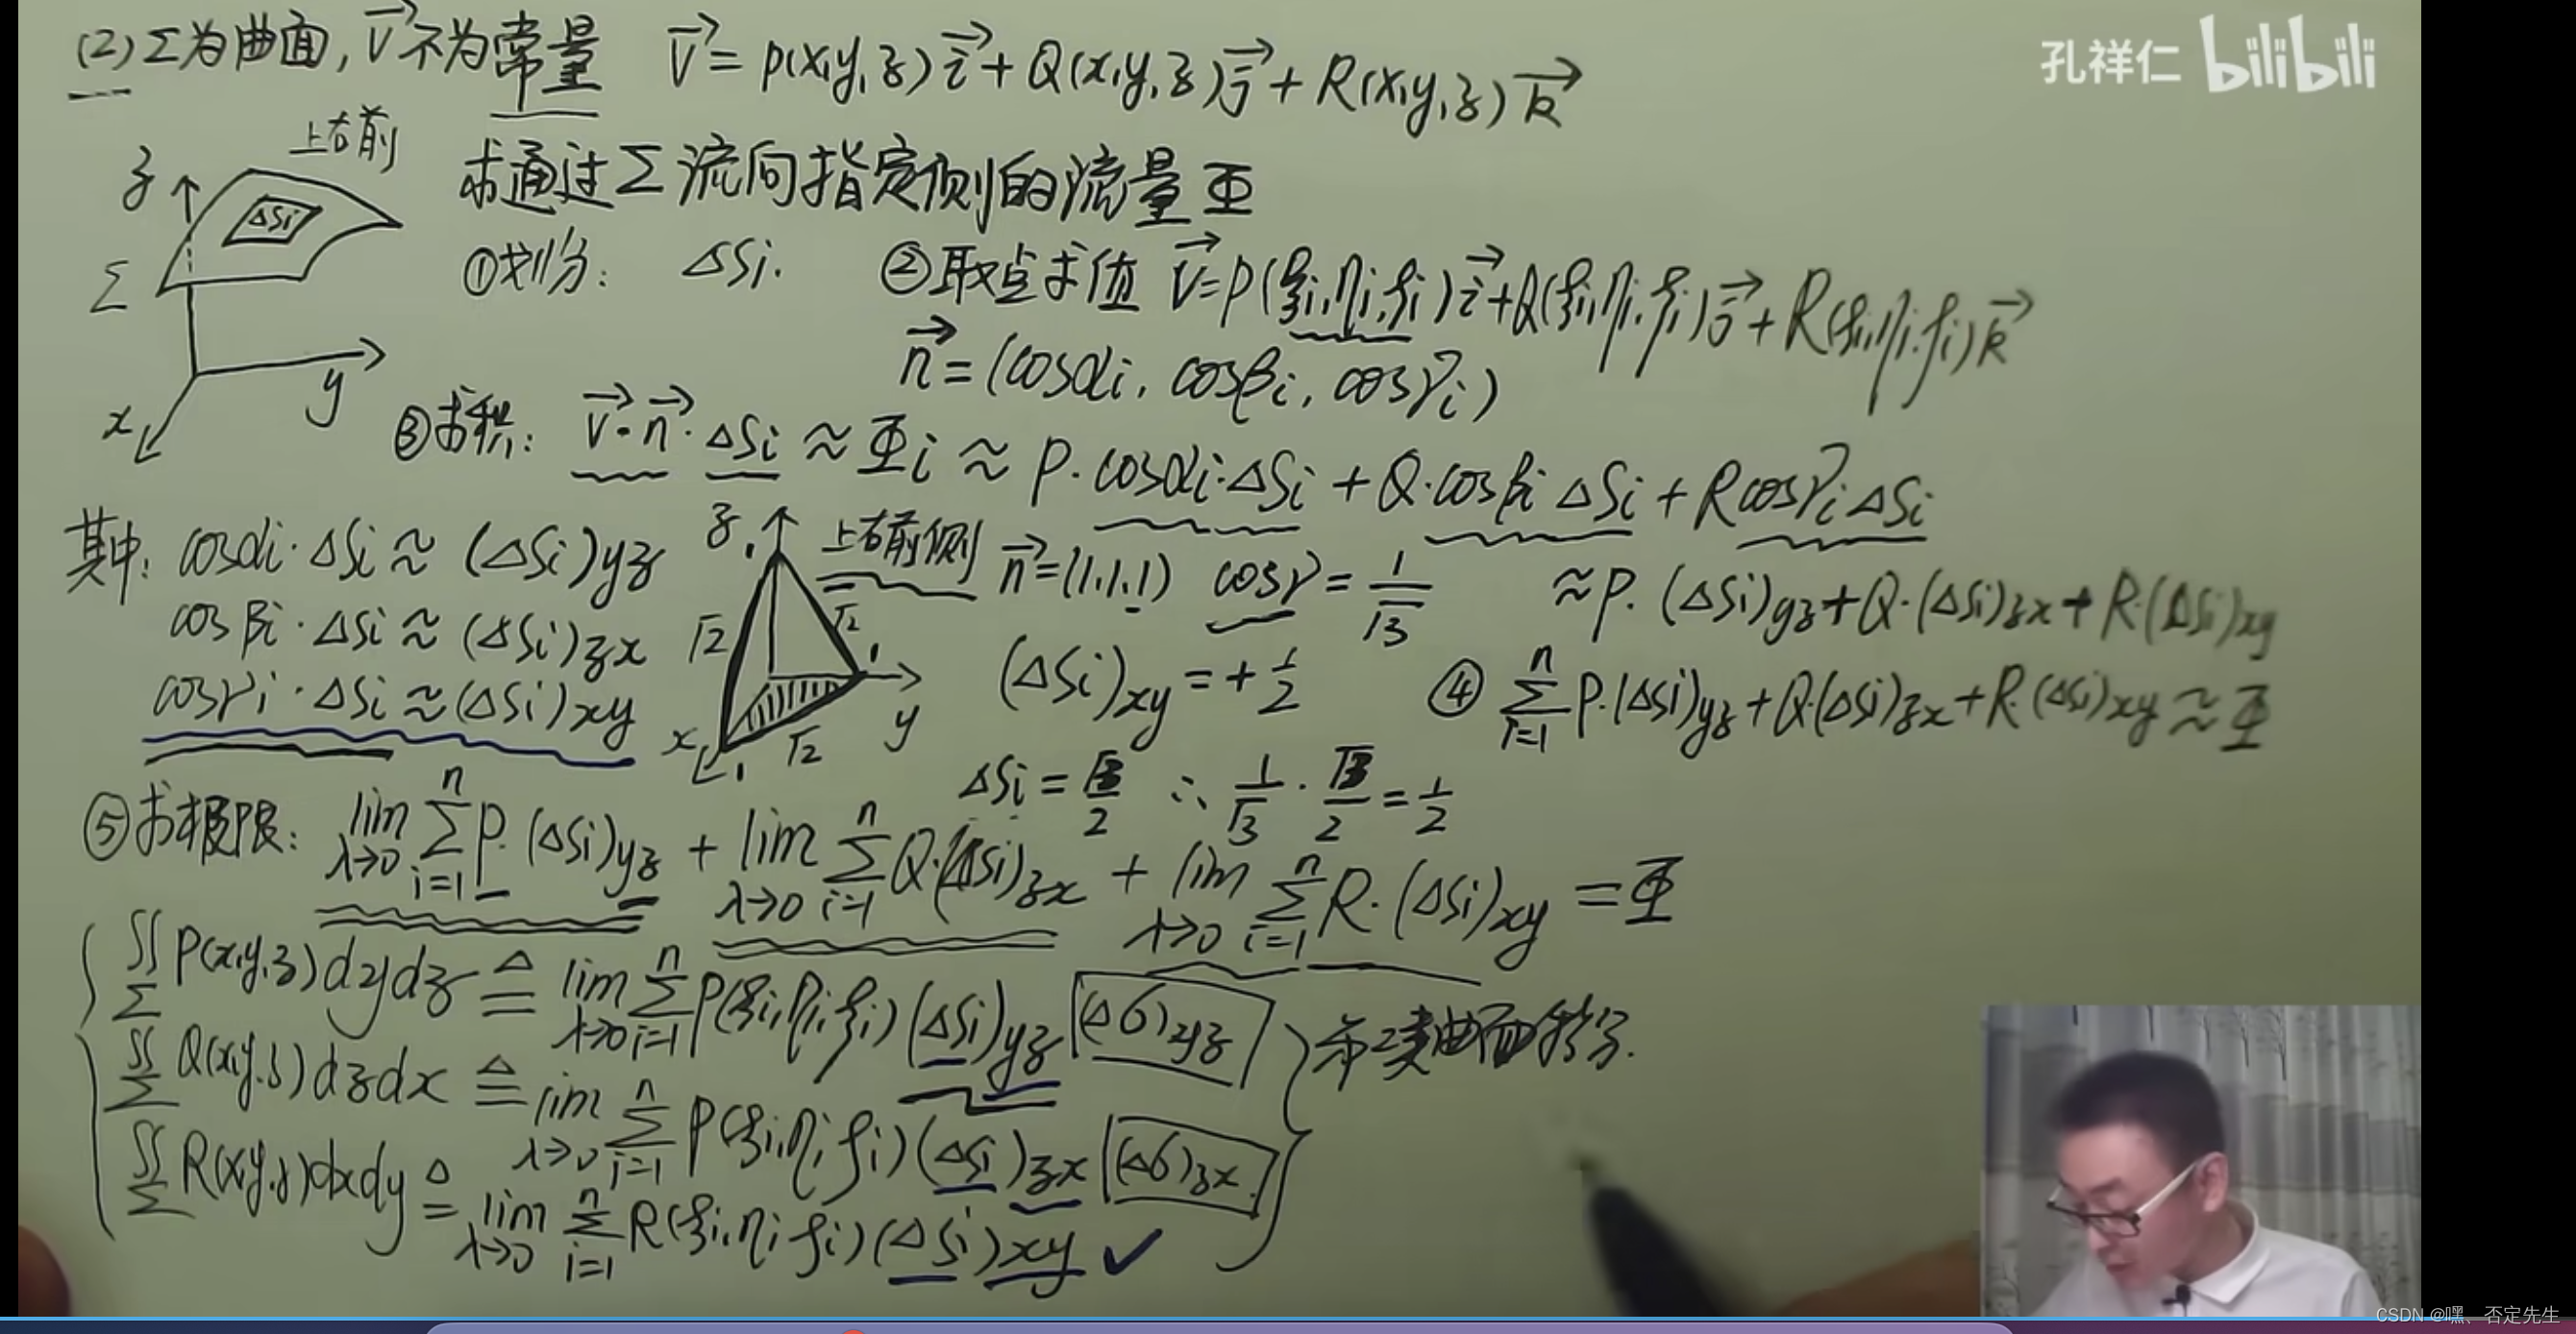 (2) Σ为曲面, V→不为常量 V→ = P(x,y,z)i→ + Q(x,y,z)j→ + R(x,y,z)k→
孔祥仁 bilibili
上右前
z
ΔSi
Σ
y
x
求通过Σ流向指定侧的流量Φ
①划分: ΔSi. ②取点求值 V→ = P(ξi,ηi,ζi)i→ + Q(ξi,ηi,ζi)j→ + R(ξi,ηi,ζi)k→
n→ = (cosαi, cosβi, cosγi)
③求积: V→·n→·ΔSi ≈ Φi ≈ P·cosαi·ΔSi + Q·cosβi ΔSi + Rcosγi ΔSi
≈ P·(ΔSi)yz + Q·(ΔSi)zx + R·(ΔSi)xy
其中: cosαi·ΔSi ≈ (ΔSi)yz
cosβi·ΔSi ≈ (ΔSi)zx
cosγi·ΔSi ≈ (ΔSi)xy
z 1 上右前侧 n→ = (1,1,1) cosγ = 1/√3
√2 √2
1
y
x 1 √2
(ΔSi)xy = +1/2
ΔSi = √3/2 ∴ 1/√3 · √3/2 = 1/2
④ Σ(i=1→n) P·(ΔSi)yz + Q·(ΔSi)zx + R·(ΔSi)xy ≈ Φ
⑤求极限: lim(λ→0) Σ(i=1→n) P·(ΔSi)yz + lim(λ→0) Σ(i=1→n) Q·(ΔSi)zx + lim(λ→0) Σ(i=1→n) R·(ΔSi)xy = Φ
∬Σ P(x,y,z)dydz ≜ lim(λ→0) Σ(i=1→n) P(ξi,ηi,ζi)(ΔSi)yz (Δσ)yz
∬Σ Q(x,y,z)dzdx ≜ lim(λ→0) Σ(i=1→n) P(ξi,ηi,ζi)(ΔSi)zx (Δσ)zx
∬Σ R(x,y,z)dxdy ≜ lim(λ→0) Σ(i=1→n) R(ξi,ηi,ζi)(ΔSi)xy ✓
第二类曲面积分.
CSDN @嘿、否定先生